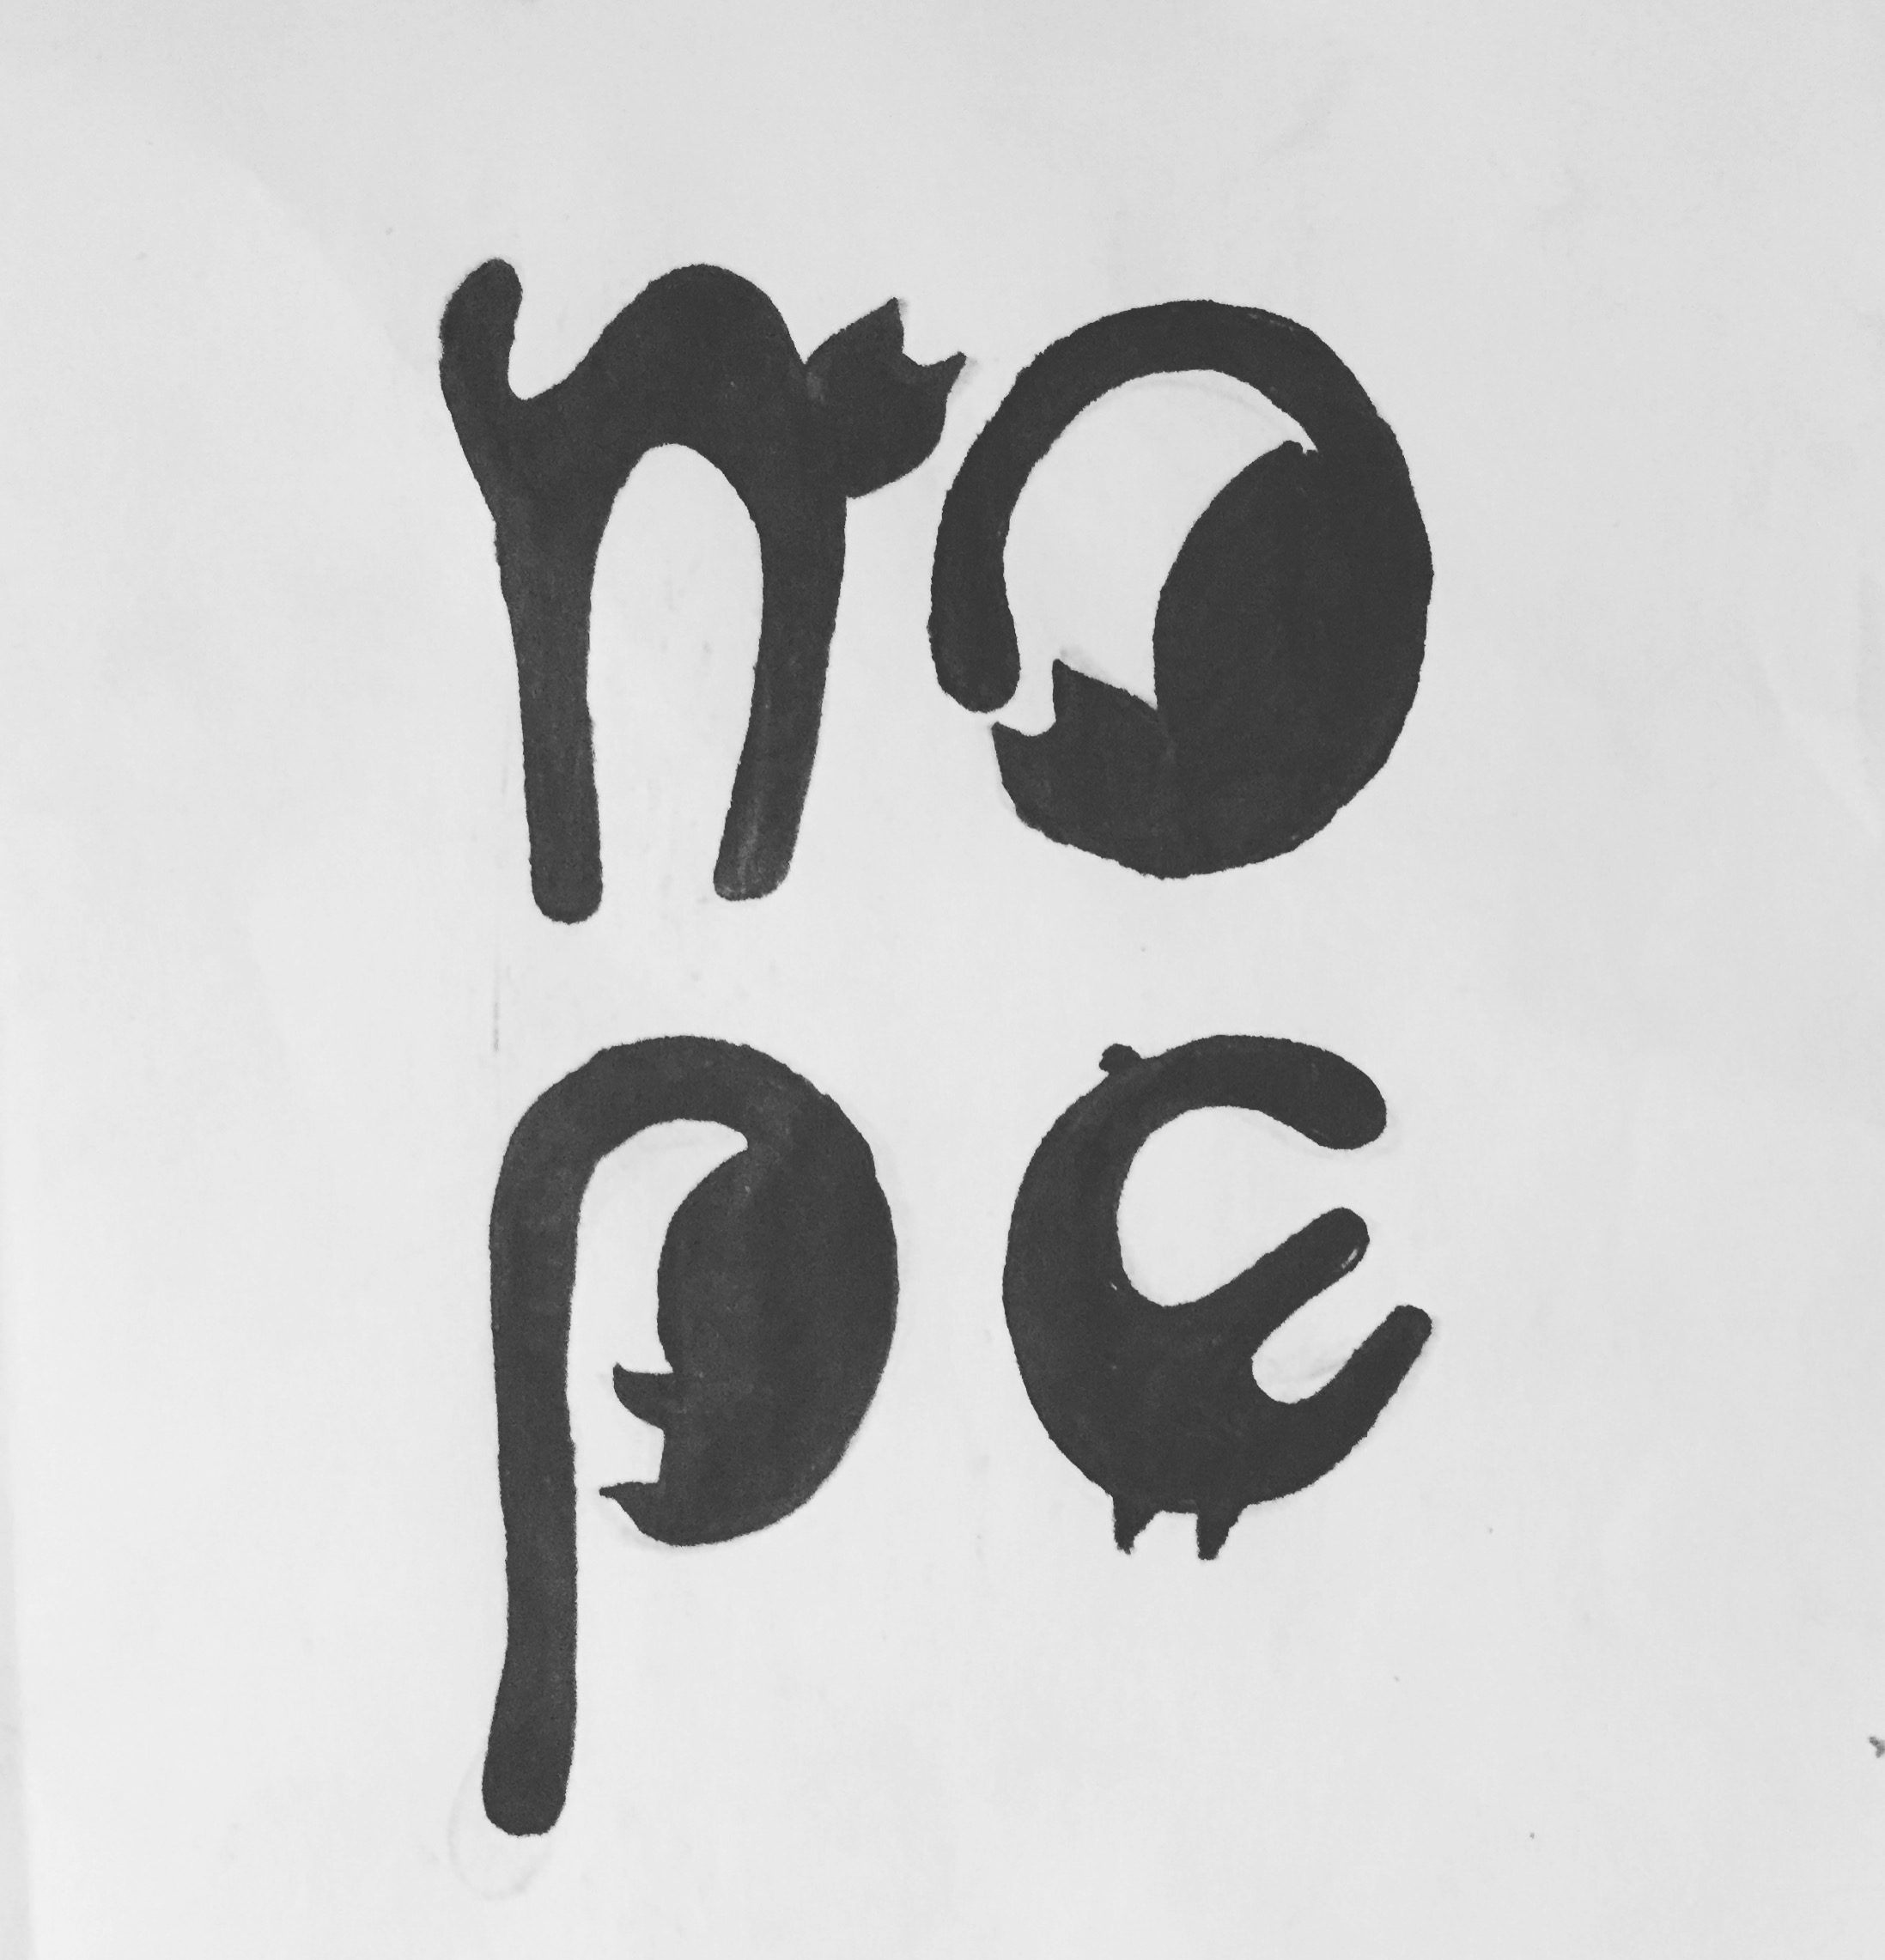 no
pe